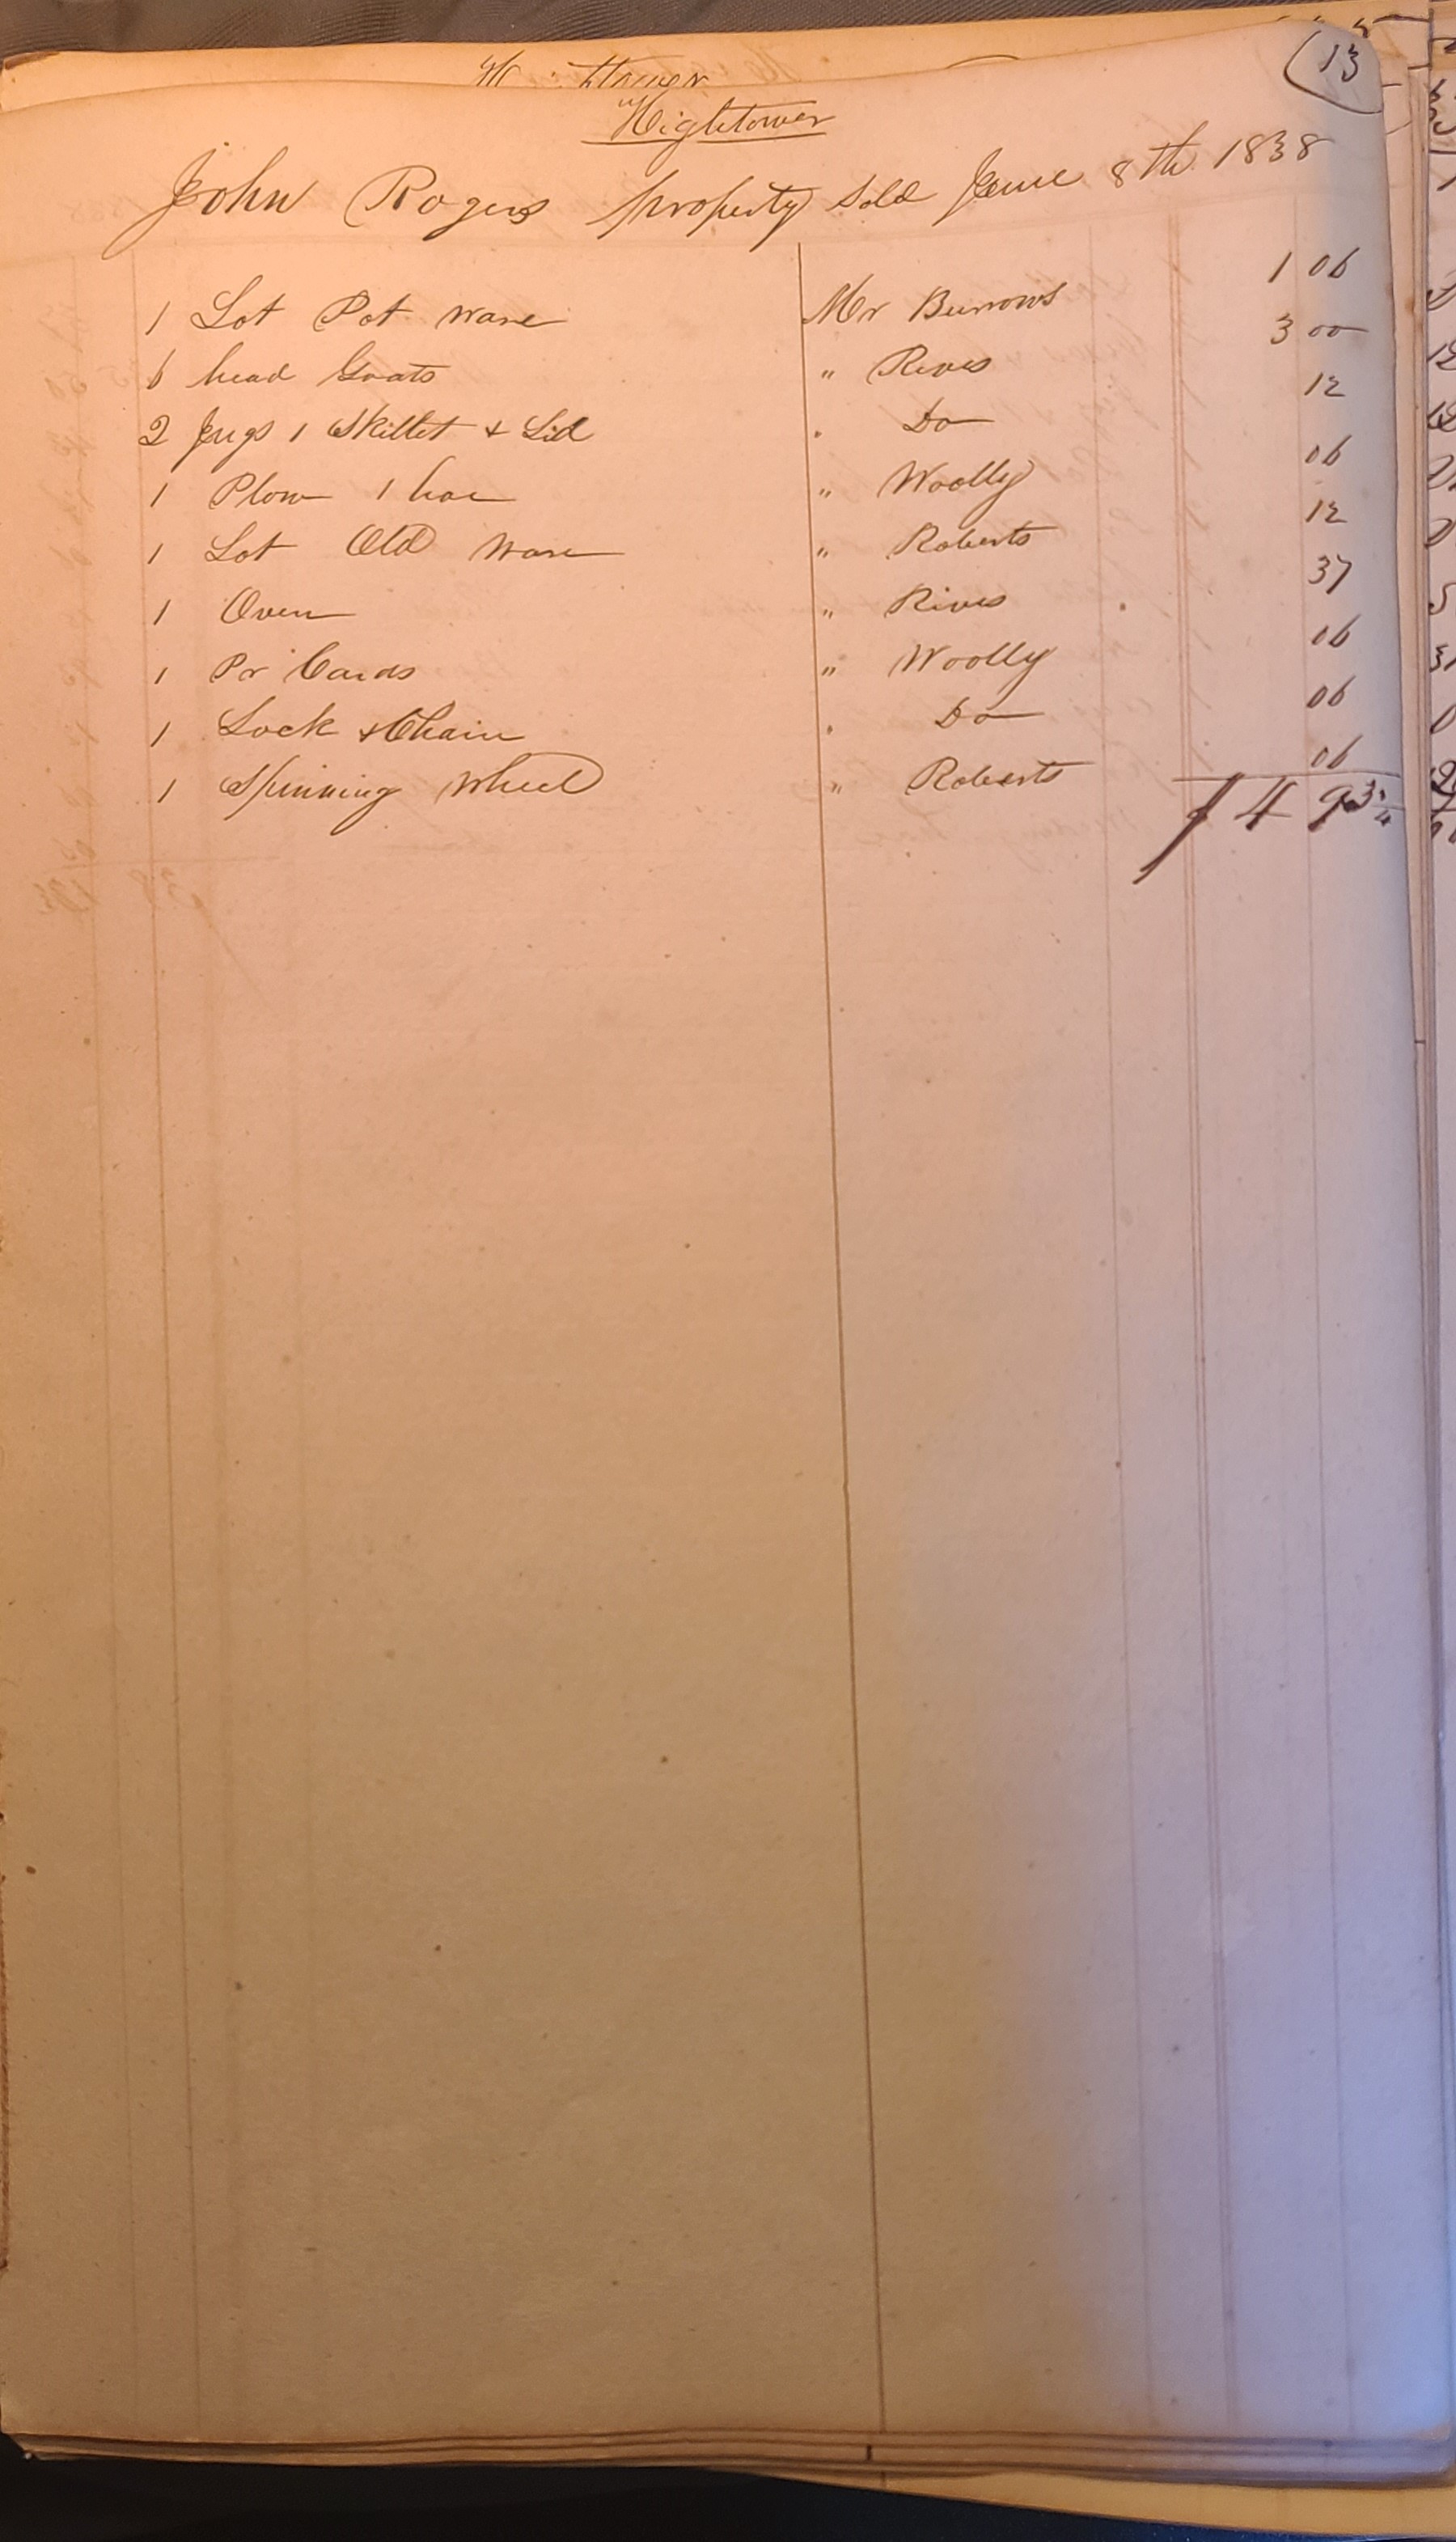 (13
Hightower
John Rogers property Sold June 8th 1838
1 Lot Pot ware Mr Burrows 1 06
6 head Goats " Rives 3 00
2 Jugs 1 Skillet + Lid " Do 12
1 Plow 1 hoe " Woolly 06
1 Lot Old Ware " Roberts 12
1 Oven " Rives 37
1 Pr Cards " Woolly 06
1 Lock + Chain " Do 06
1 Spinning Wheel " Roberts 06
$ 4 93 3/4